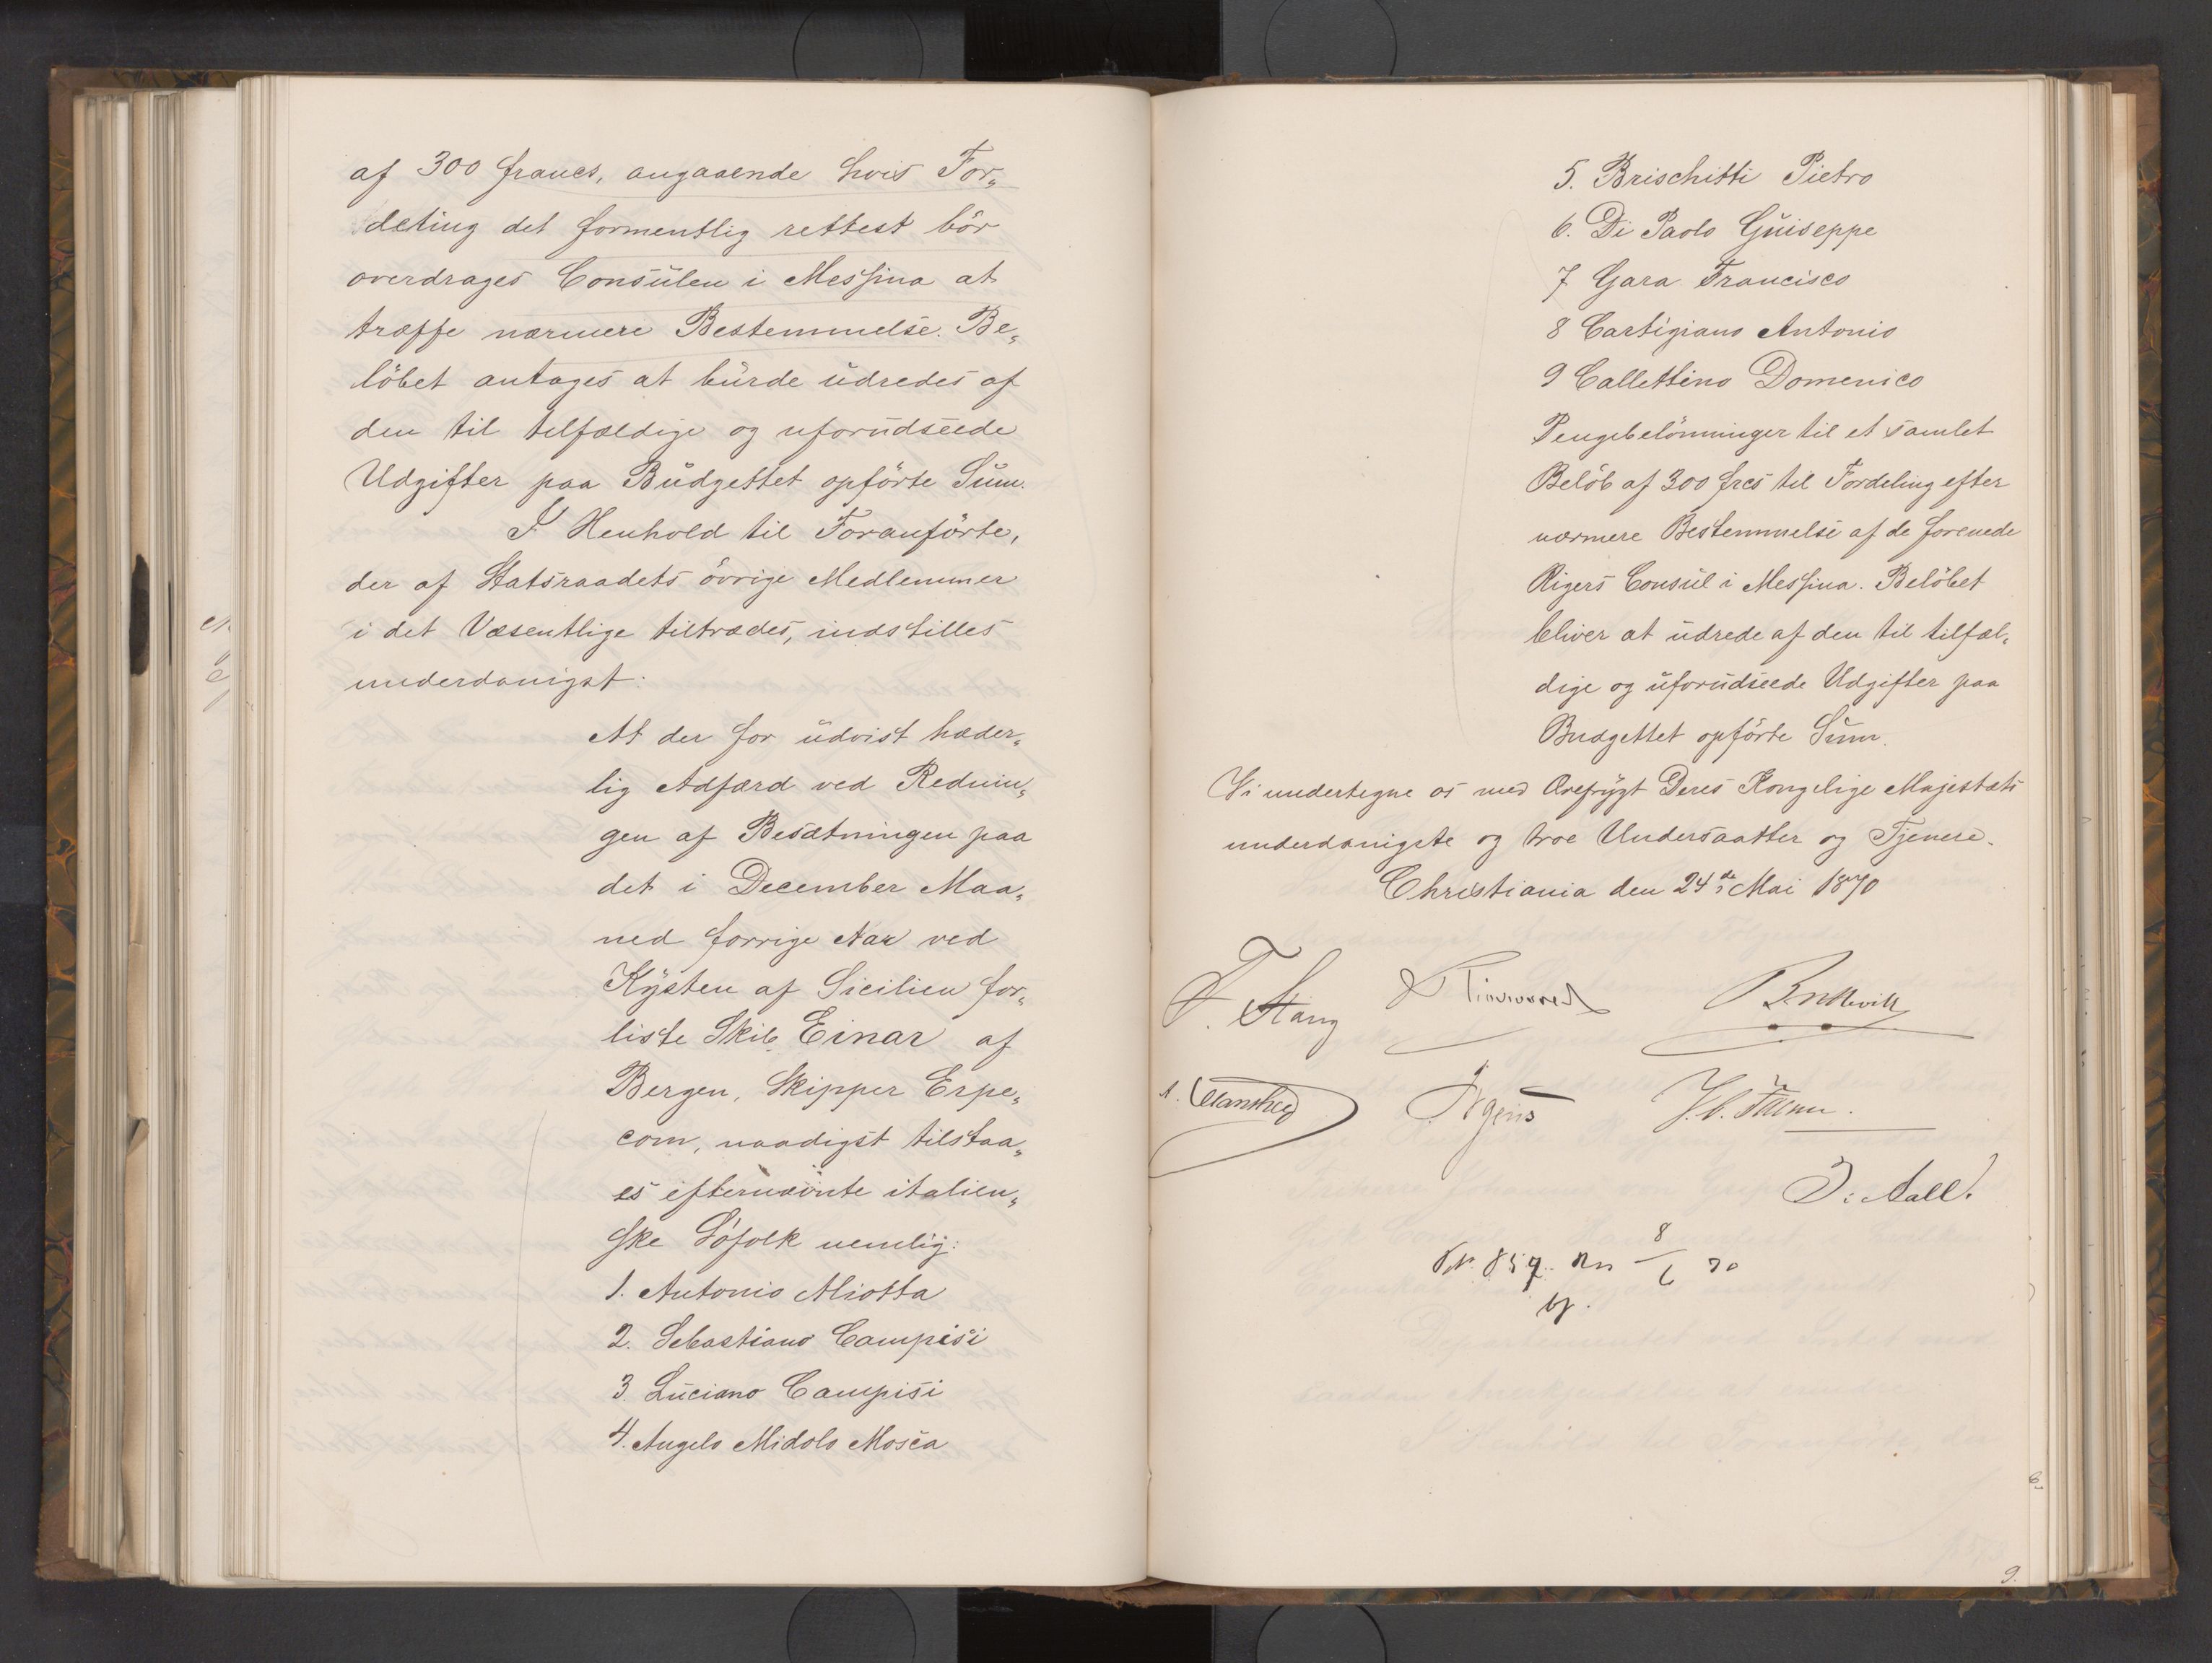 af 300 francs, angaaende hvis For„
deling det formentlig rettest bör
overdrages Consulen i Messina at
træffe nærmere Bestemmelse. Be„
löbet antages at burde udredes af
den til tilfældige og uforudseede
Udgifter paa Budgettet opförte Sum.
I Henhold til Foranförte,
der af Statsraadets övrige Medlemmer
i det Væsentlige tiltrædes, indstilles
underdanigst:
At der for udvist hæder„
lig Adfærd ved Rednin„
gen af Besætningen paa
det i December Maa„
ned forrige Aar ved
Kysten af Sicilien for„
liste Skib Einar af
Bergen, Skipper Erpe„
com, naadigst tilstaa„
es efternævnte italien„
ske Söfolk nemlig:
1. Antonio Miotta
2. Sebastiano Campisi
3. Luciano Campisi
4. Angelo Midolo Mosca
5. Brischitti Pietro
6. Di Paolo Guiseppe
7 Gara Francisco
8 Cartigiano Antonio
9 Callettino Domenico
Pengebelönninger til et samlet
Belöb af 300 frcs til Fordeling efter
nærmere Bestemmelse af de forenede
Rigers Consul i Messina. Belöbet
bliver at udrede af den til tilfæl„
dige og uforudseede Udgifter paa
Budgettet opförte Sum.
Vi undertegne os med Ærefrygt Deres Kongelige Majestæts
underdanigste og troe Undersaatter og Tjenere.
Christiania den 24de Mai 1870
F. Stang
Bretteville
Irgens J. C. Falsen
J. Aall.
No. 857. 8/6 70
9.